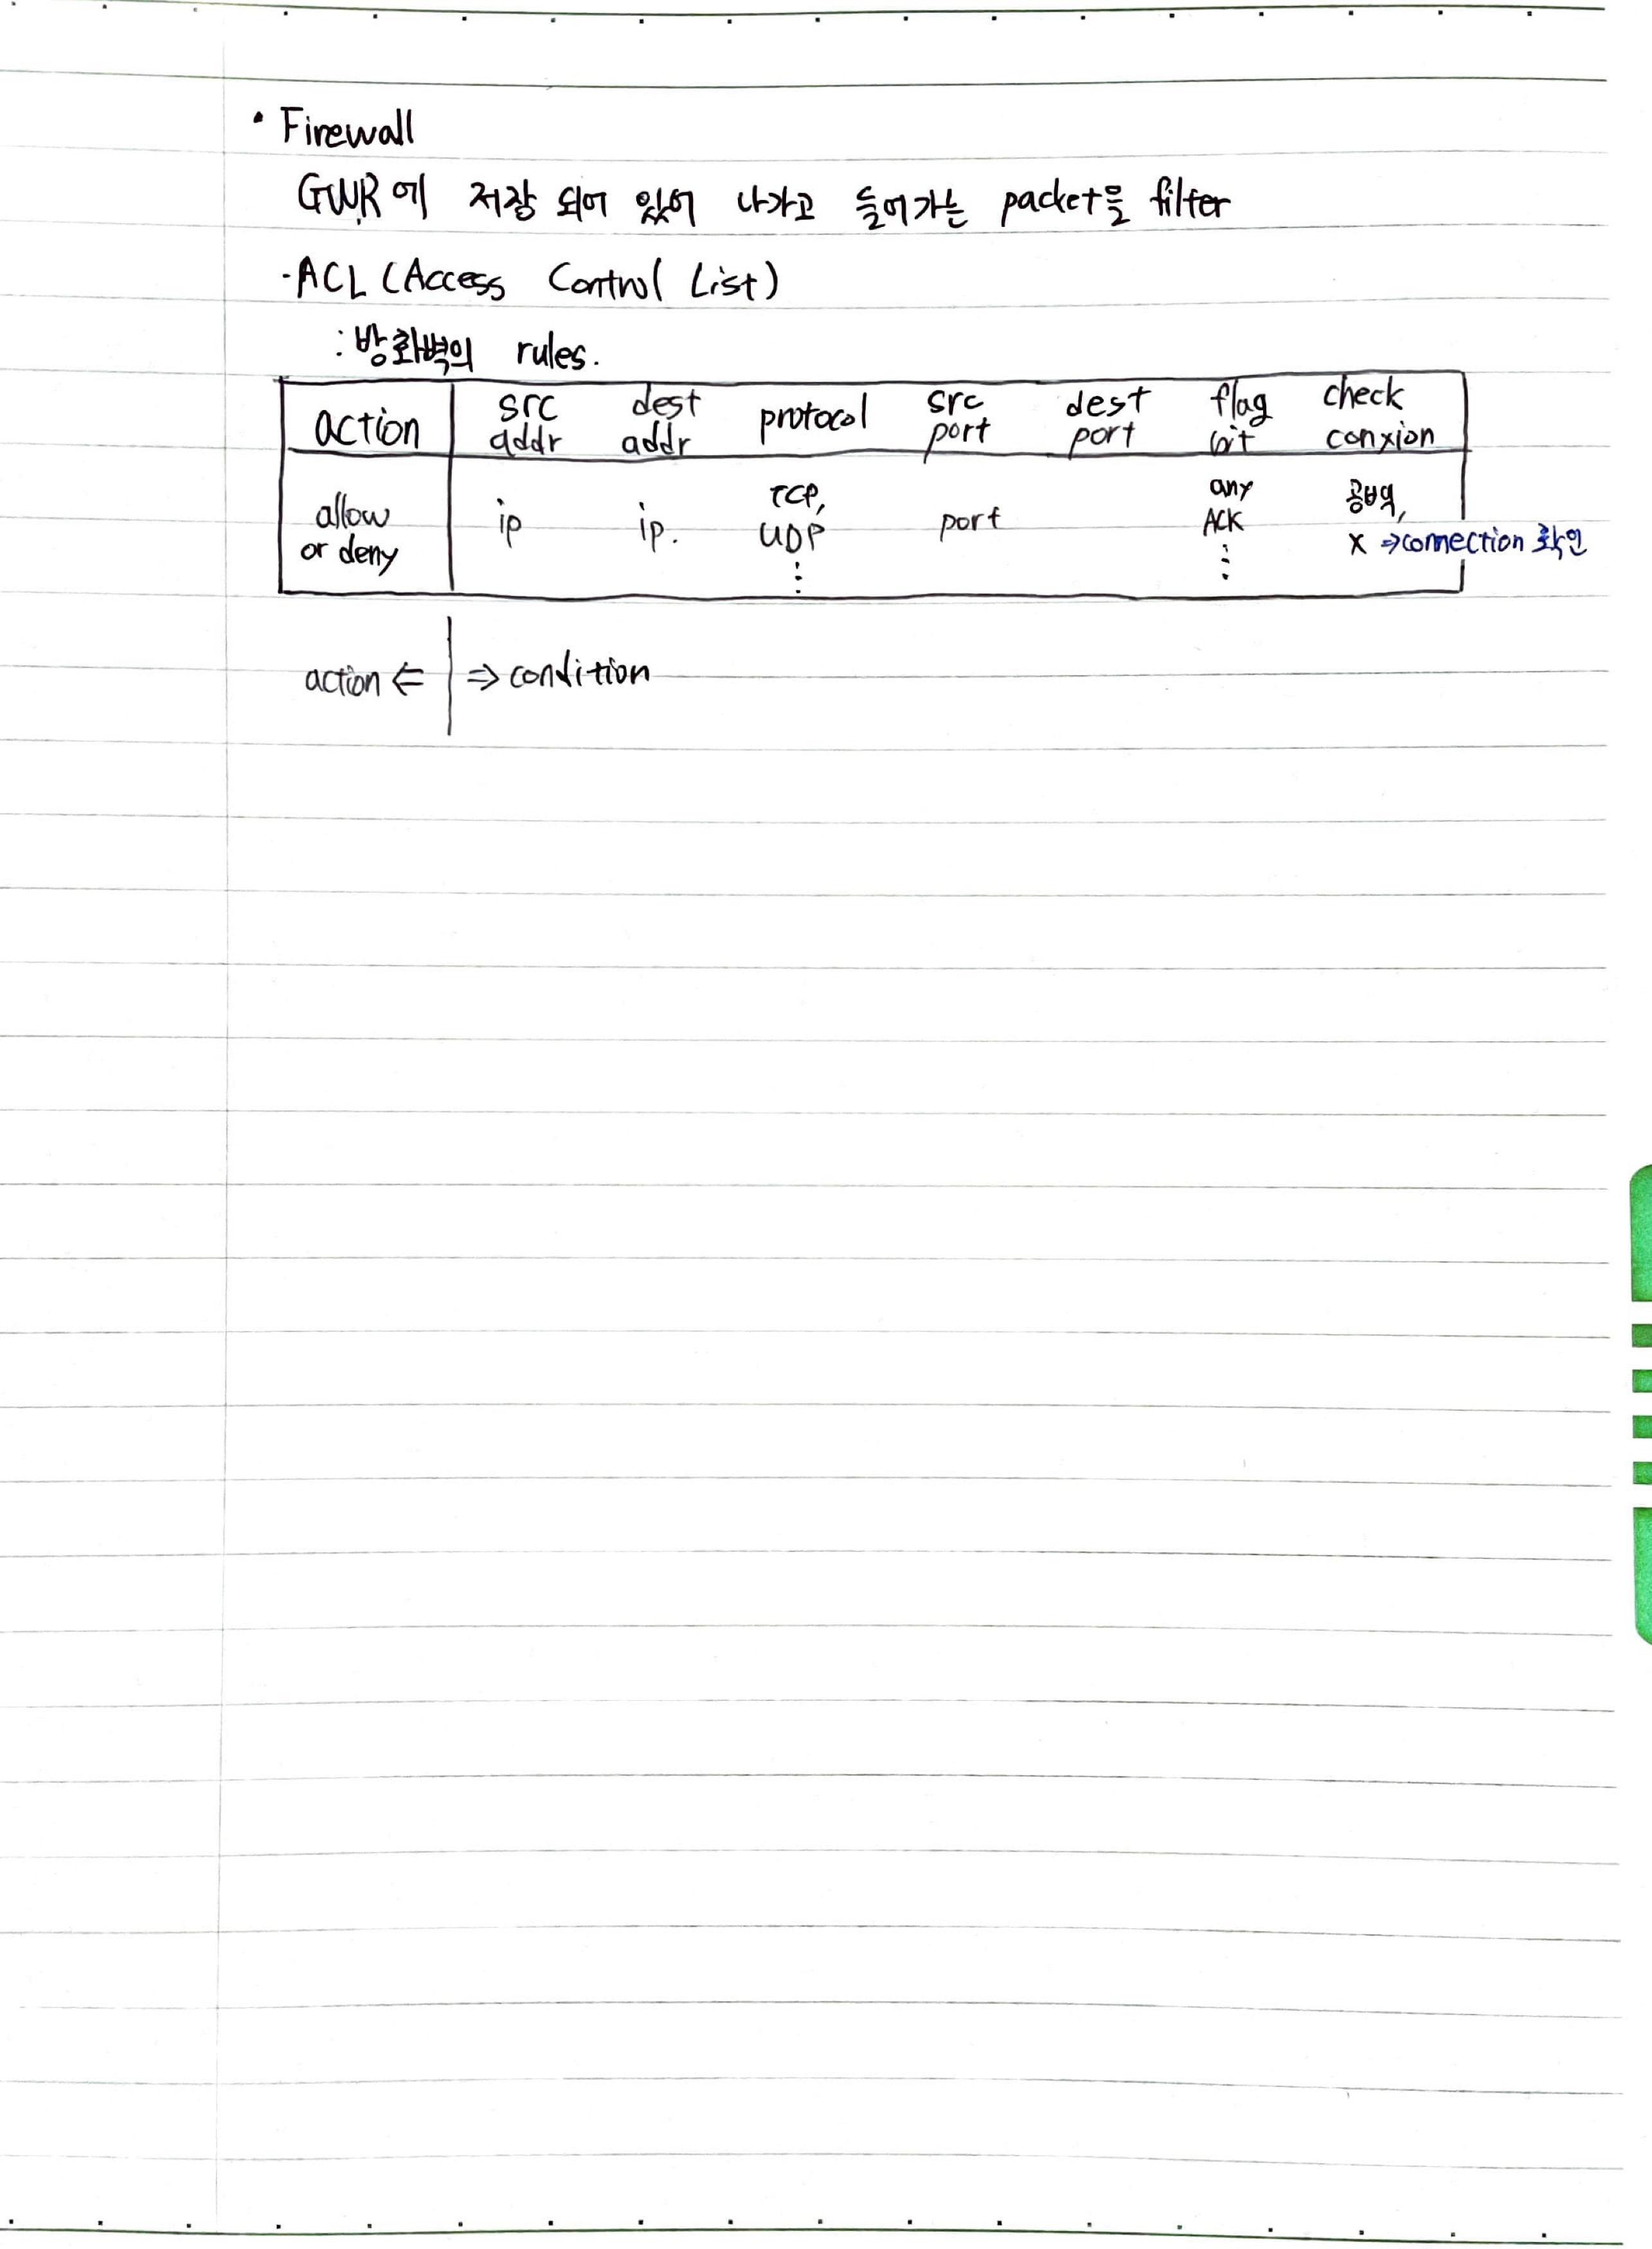 • Firewall
GWR에 저장 되어 있어 나가고 들어가는 packet을 filter
-ACL (Access Control List)
:방화벽의 rules.
action src addr dest addr protocol src port dest port flag bit check conxion
allow or deny ip ip. TCP, UDP ⋮ port any ACK ⋮ 공백, x ⇒connection 확인
action ⇐ | ⇒ condition